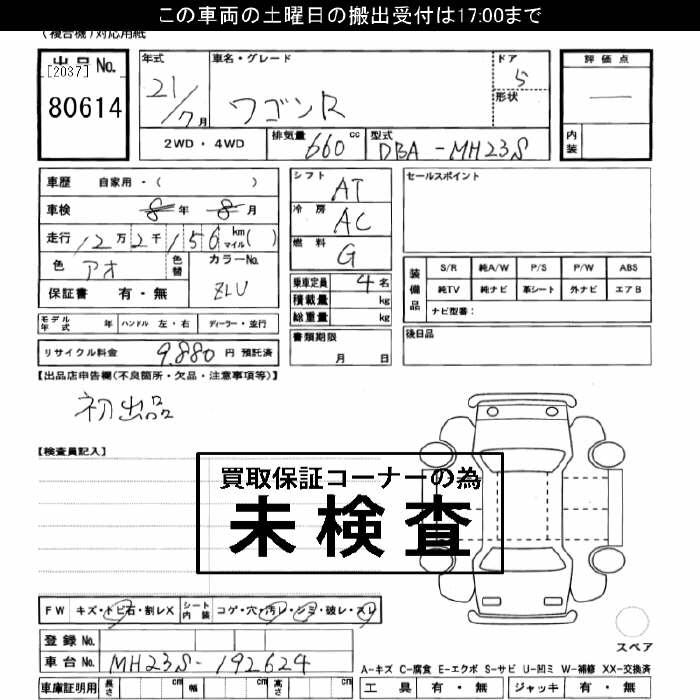 この車両の土曜日の搬出受付は17:00まで
(複合機)対応用紙
出品No. [2037] 80614
年式 21/7月
車名・グレード ワゴンR
ドア 5
形状
評価点 —
内装
2WD・4WD 排気量 660cc 型式 DBA-MH23S
車歴 自家用・( )
車検 8年 8月
走行 12万2千156 km マイル( )
色 アオ 色替 カラーNo. ZLU
保証書 有・無
シフト AT
冷房 AC
燃料 G
乗車定員 4名
積載量 kg
総重量 kg
書類期限 月 日
セールスポイント
装備品 S/R 純A/W P/S P/W ABS
純TV 純ナビ 革シート 外ナビ エアB
ナビ型番:
後日品
モデル年式 年 ハンドル 左・右 ディーラー・並行
リサイクル料金 9,880 円 預託済
【出品店申告欄(不良箇所・欠品・注意事項等)】
初出品
【検査員記入】
買取保証コーナーの為
未検査
FW キズ・トビ石・割レX シート内装 コゲ・穴・汚レ・シミ・破レ・スレ
登録No.
車台No. MH23S-192624
車庫証明用 長さ cm 幅 cm 高さ cm
スペア
A-キズ C-腐食 E-エクボ S-サビ U-凹ミ W-補修 XX-交換済
工具 有・無 ジャッキ 有・無